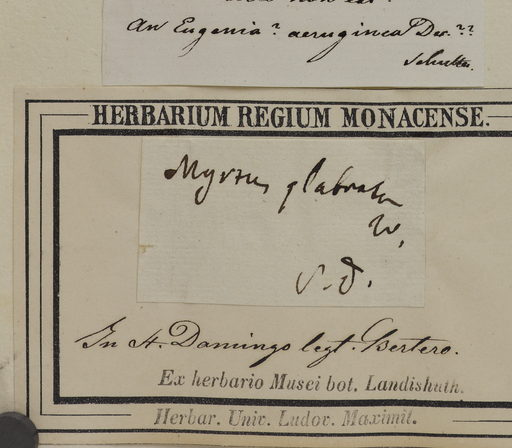 An Eugenia? aeruginea Dec.??
Schultes.
HERBARIUM REGIUM MONACENSE.
Myrtus glabrata
W.
S. D.
In St. Domingo legt. Bertero.
Ex herbario Musei bot. Landishuth.
Herbar. Univ. Ludov. Maximil.